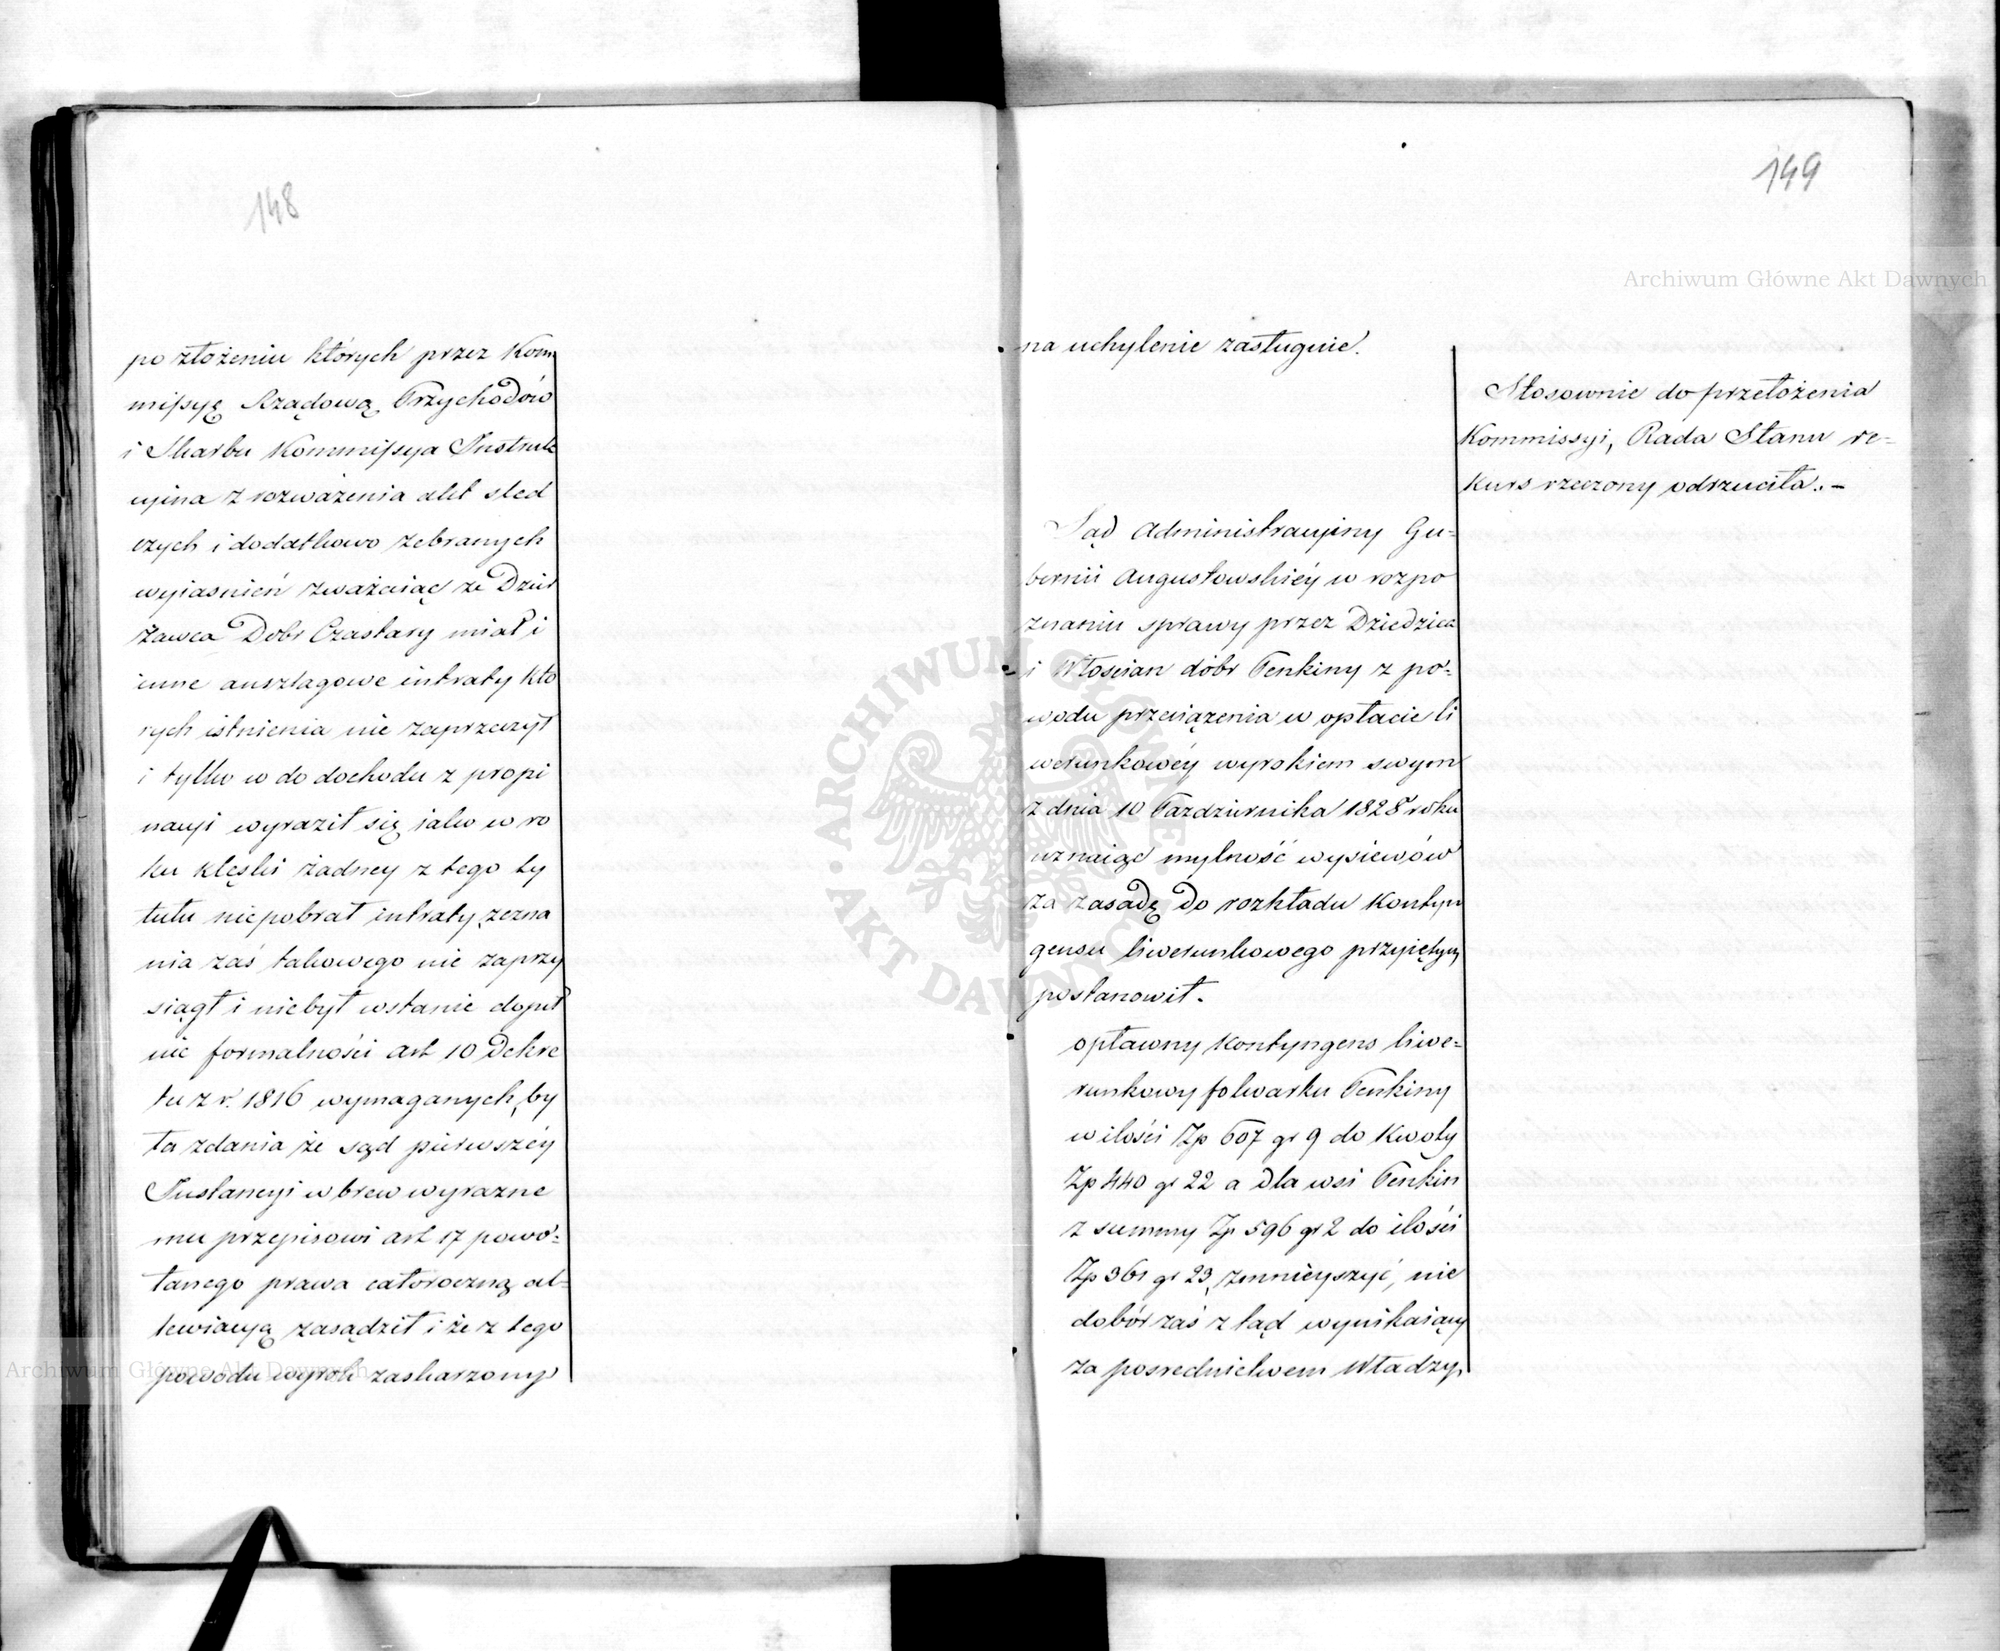 148
po złożeniu których przez Kom
missyę Rządową Przychodów
i Skarbu Kommissya Instruk
cyina z rozważenia akt sled
czych i dodatkowo zebranych
wyiasnień zważaiąc że Dzier
żawca Dobr Czastary miał i
inne auszlagowe intraty kto
rych istnienia nie zaprzeczył
i tylko w do dochodu z propi
nacyi wyraził się iako w ro
ku klęski żadney z tego ty
tułu niepobrał intraty, zezna
nia zaś takowego nie zaprzy
siągł i niebył wstanie dopeł
nić formalności art 10 Dekre
tu z r. 1816 wymaganych, by
ła zdania że sąd pierwszéy
Instancyi w brew wyrazne
mu przepisowi art 17 powo-
łanego prawa całoroczną al-
lewiacyą zasądził i że z tego
powodu wyrok zaskarzony
149
na uchylenie zasługuie.
Stosownie do przełożenia
Kommissyi, Rada Stanu re-
kurs rzeczony odrzuciła. -
Sąd Administracyiny Gu-
bernii Augustowskiéy w rozpo
znaniu sprawy przez Dziedzica
i Włoscian dóbr Penkiny z po-
wodu przeciązenia w opłacie li
werunkowéy wyrokiem swym
z dnia 10 Pazdziernika 1828 roku
uznaiąc mylność wysiewów
za zasadę do rozkładu Kontyn
gensu liwerunkowego przyiętych
postanowił.
opłacony Kontyngens liwe-
runkowy folwarku Penkiny
w ilości Zp 607 gr 9 do Kwoty
Zp 440 gr 22 a dla wsi Penkin
z summy Zp 596 gr 2 do ilości
Zp 361 gr 23, zmnieyszyć, nie
dobór zaś z tąd wynikaiący
za posrednictwem Władzy
Archiwum Główne Akt Dawnych
Archiwum Główne Akt Dawnych
ARCHIWUM GŁÓWNE AKT DAWNYCH